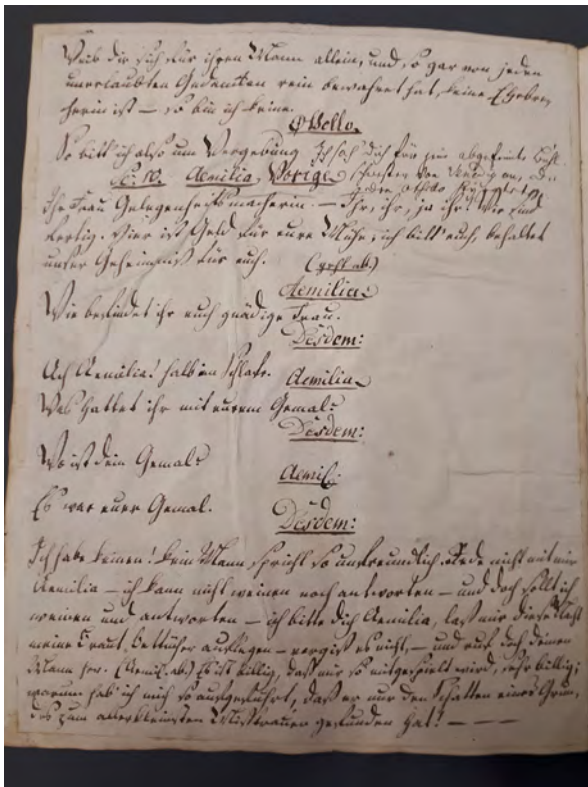 Weib die sich für ihren Mann allein, und so gar von jeden
unerlaubten Gedanken rein bewahret hat, keine Ehebre,
cherin ist — so bin ich keine.
Othello.
So bitt ich also um Vergebung Ich sah dich für jene abgefeimte Buhl
Sc: 10. Aemilia, Vorige schwester von Venedig an, die
Ihr Frau Gelegenheitsmacherin. — Ihr, ihr, ja ihr! Wir sind
fertig. Hier ist Geld für eure Mühe, ich bitt euch, behaltet
unser Geheimniß für euch. (geht ab.)
Aemilia:
Wie befindet ihr euch gnädige Frau.
Desdem:
Ach Aemilia! halb im Schlafe.
Aemilia
Was hattet ihr mit eurem Gemal:
Desdem:
Wo ist dein Gemal:
Aemil:
Es war euer Gemal.
Desdem:
Ich habe keinen! kein Mann spricht so unfreundlich. Rede nicht mit mir
Aemilia — ich kann nicht weinen noch antworten — und doch sollt ich
weinen und antworten — ich bitte dich Aemilia, laß mir diese Nacht
meine Braut, bettücher auflegen — vergiß es nicht, — und ruf doch deinen
Mann her. (Aemil. ab.) Es ist billig, daß mir so mitgespielt wird, sehr billig;
warum hab ich mich so aufgeführt, daß er nur den Schatten eines Grun,
des zum allerkleinsten Mißtrauen gefunden hat! — — —